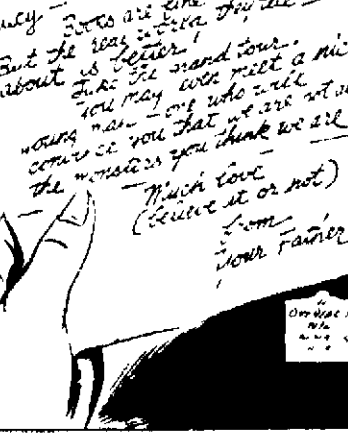 Books are fine
But the real world they tell
about is better!
Take the grand tour.
You may even meet a nice
young man - one who will
convince you that we are not all
the monsters you think we are
Much love
(believe it or not)
from
your Father